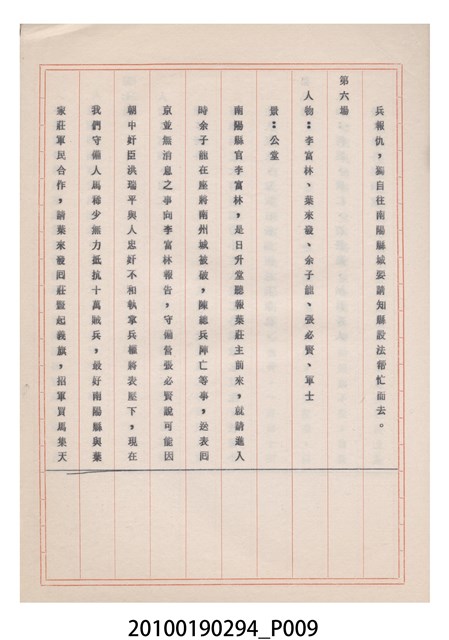 兵報仇,獨自往南陽縣城要請知縣設法幫忙而去。
第六場
人物:李富林、葉來發、余子龍、張必賢、軍士
景:公堂
南陽縣官李富林,是日升堂聽報葉莊主前來,就請進入
時余子龍在座將南州城被破,陳總兵陣亡等事,送表回
京並無消息之事向李富林報告,守備營張必賢說可能因
朝中奸臣洪瑞平與人忠奸不和執掌兵權將表壓下,現在
我們守備人馬稀少無力抵抗十萬賊兵,最好南陽縣與葉
家莊軍民合作,請葉來發回莊豎起義旗,招軍買馬集天
20100190294_P009